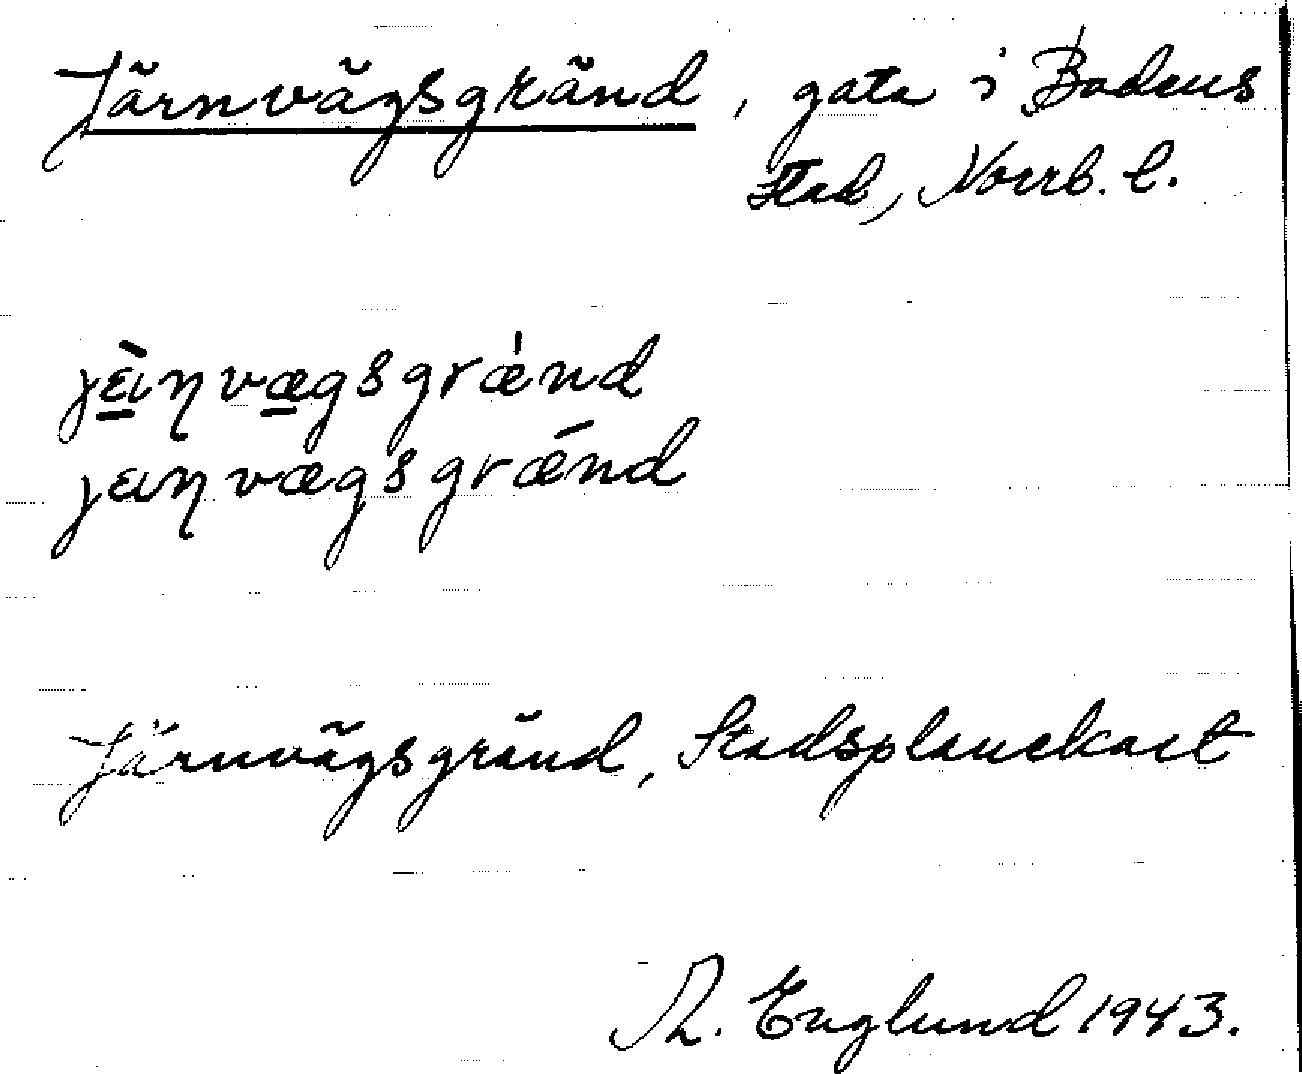 Järnvägsgränd, gata i Bodens
stad, Norrb. l.
jɛ̀ıηvægsgrǽnd
jɛıηvægsgrǽnd
Järnvägsgränd, Stadsplanekart
Englund 1943.